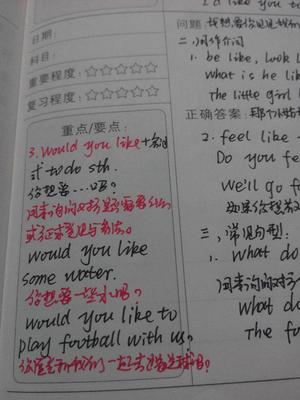 日期:
科目:
重要程度:☆☆☆☆☆
复习程度:☆☆☆☆☆
重点/要点:
3. would you like + 名词
或 to do sth.
你想要...吗?
用来询问对方是否需要什么
或征求意见与看法。
would you like
some water.
你想要一些水吗?
would you like to
play football with us?
你愿意和我们一起去踢足球吗?
2. I'd like you to
问题:
二、词作介词
1. be like, look l
what is he lik
The little girl l
正确答案:
2. feel like
Do you fe
we'll go f
如果你想
三、常见句型:
1. what do
用来询问对方
what do
The fo